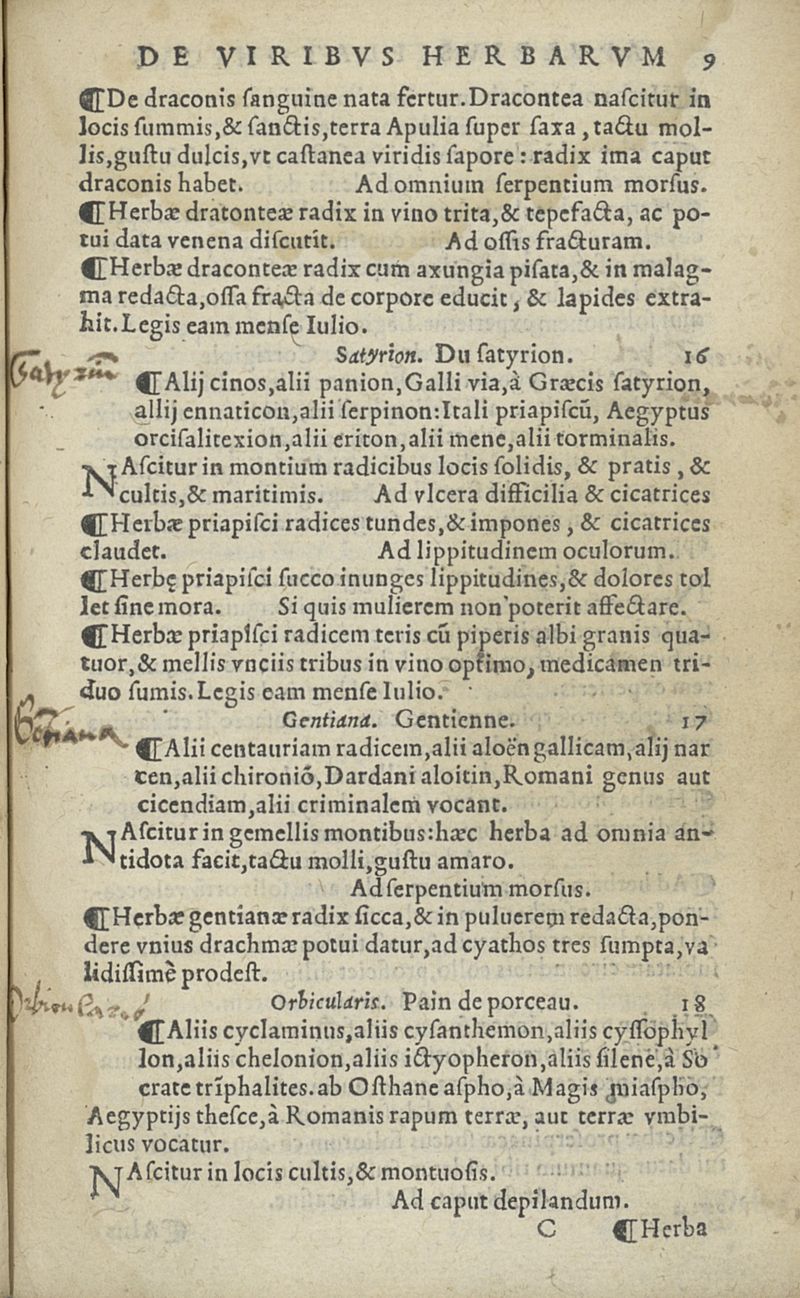 DE VIRIBVS HERBARVM 9
¶De draconis ſanguine nata fertur.Dracontea naſcitur in
locis ſummis,& ſanctis,terra Apulia ſuper ſaxa , tactu mol-
lis,guſtu dulcis,vt caſtanea viridis ſapore : radix ima caput
draconis habet. Ad omnium ſerpentium morſus.
¶Herbæ dratonteæ radix in vino trita,& tepefacta, ac po-
tui data venena diſcutit. Ad oſſis fracturam.
¶Herbæ draconteæ radix cum axungia piſata,& in malag-
ma redacta,oſſa fracta de corpore educit , & lapides extra-
hit.Legis eam menſe Iulio.
Satyrion. Du ſatyrion. 16
Satyrion
¶Alij cinos,alii panion,Galli via,à Græcis ſatyrion,
allij ennaticon,alii ſerpinon:Itali priapiſcū, Aegyptus
orciſalitexion,alii eriton,alii mene,alii torminalis.
NAſcitur in montium radicibus locis ſolidis, & pratis , &
cultis,& maritimis. Ad vlcera difficilia & cicatrices
¶Herbæ priapiſci radices tundes,& impones , & cicatrices
claudet. Ad lippitudinem oculorum.
¶Herbę priapiſci ſucco inunges lippitudines,& dolores tol
let ſine mora. Si quis mulierem non poterit affectare.
¶Herbæ priapiſci radicem teris cū piperis albi granis qua-
tuor,& mellis vnciis tribus in vino optimo, medicamen tri-
duo ſumis.Legis eam menſe Iulio.
Gentiana. Gentienne. 17
¶Alii centauriam radicem,alii aloën gallicam,alij nar
cen,alii chironiō,Dardani aloitin,Romani genus aut
cicendiam,alii criminalem vocant.
NAſcitur in gemellis montibus:hæc herba ad omnia an-
tidota facit,tactu molli,guſtu amaro.
Ad ſerpentium morſus.
¶Herbæ gentianæ radix ſicca,& in puluerem redacta,pon-
dere vnius drachmæ potui datur,ad cyathos tres ſumpta,va
lidiſſimè prodeſt.
Orbicularis. Pain de porceau. 18
¶Aliis cyclaminus,aliis cyſanthemon,aliis cyſſophyl
lon,aliis chelonion,aliis ictyopheron,aliis ſilene,à So
crate triphalites.ab Oſthane aſpho,à Magis miaſpho,
Aegyptijs theſce,à Romanis rapum terræ, aut terræ vmbi-
licus vocatur.
NAſcitur in locis cultis,& montuoſis.
Ad caput depilandum.
C ¶Herba